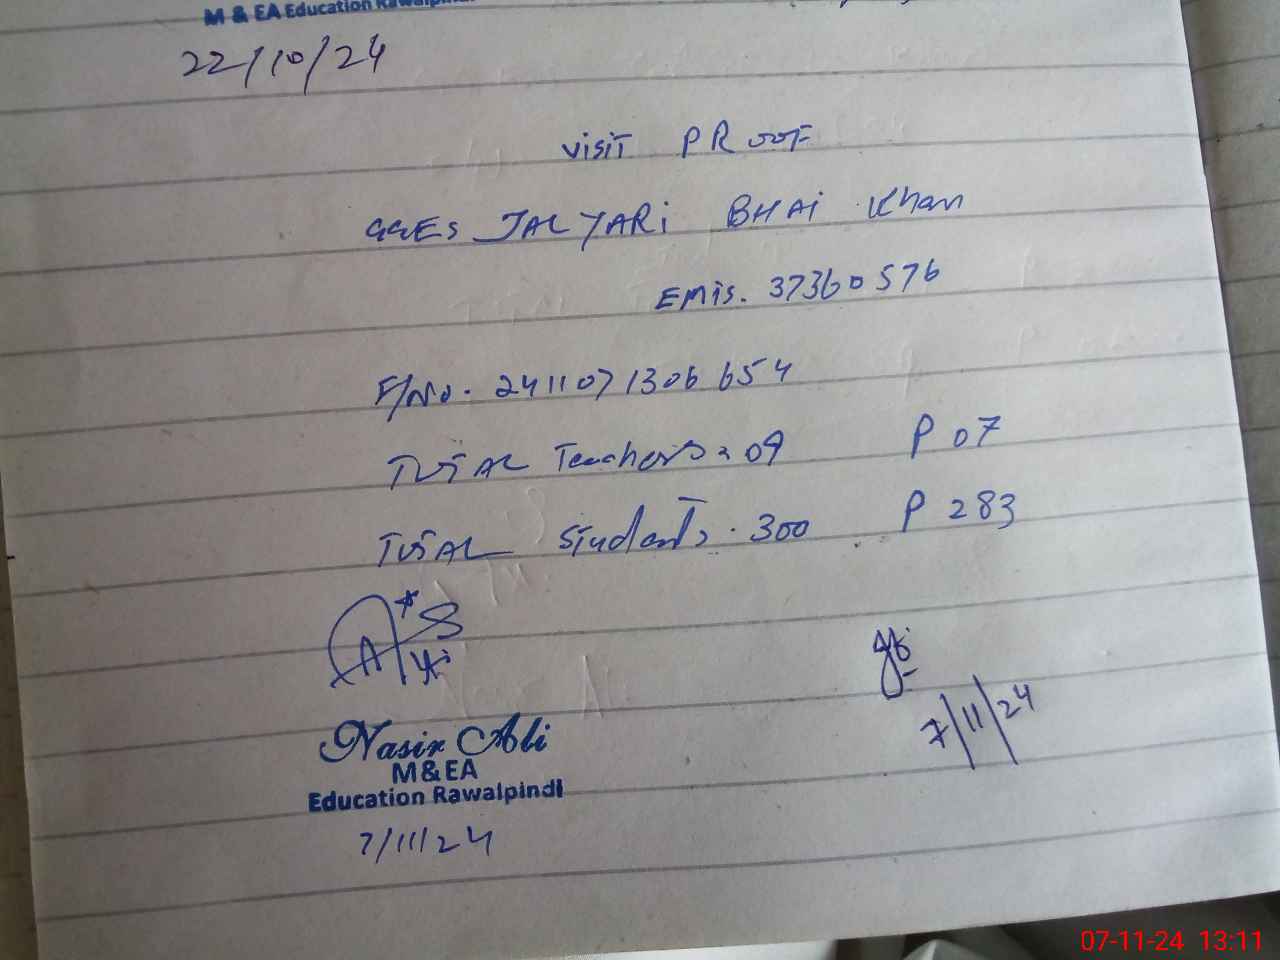 M & EA Education Rawalpindi
22/10/24
VISIT PROOF
GGES JALYARI BHAI Khan
EMIS. 37360576
F/No. 241107 1306 654
TOTAL Teachers = 09 P 07
TOTAL Students. 300 P 283
Nasir Ali
M&EA
Education Rawalpindi
7/11/24
7/11/24
07-11-24 13:11